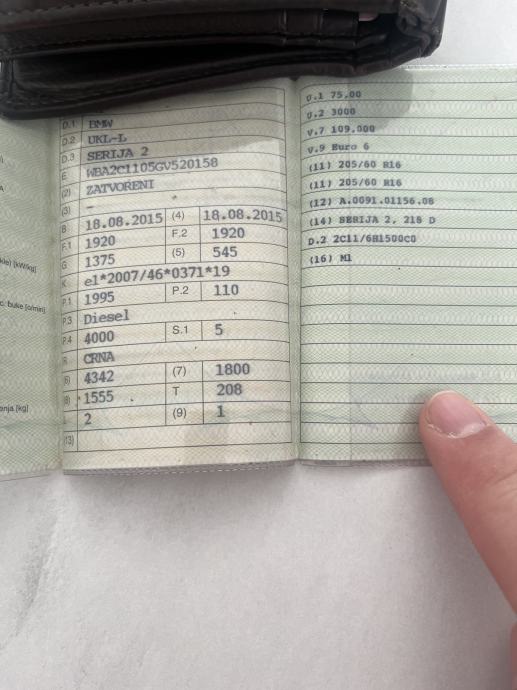 D.1 BMW
D.2 UKL-L
D.3 SERIJA 2
E WBA2C1105GV520158
(2) ZATVORENI
(3) -
B 18.08.2015 (4) 18.08.2015
F.1 1920 F.2 1920
G 1375 (5) 545
K e1*2007/46*0371*19
P.1 1995 P.2 110
P.3 Diesel
P.4 4000 S.1 5
R CRNA
(6) 4342 (7) 1800
(8) 1555 T 208
2 (9) 1
(13)
[kW/kg]
buke [o/min]
[kg]
U.1 75,00
U.2 3000
V.7 109,000
V.9 Euro 6
(11) 205/60 R16
(11) 205/60 R16
(12) A.0091.01156.08
(14) SERIJA 2, 218 D
D.2 2C11/6H1500C0
(16) M1